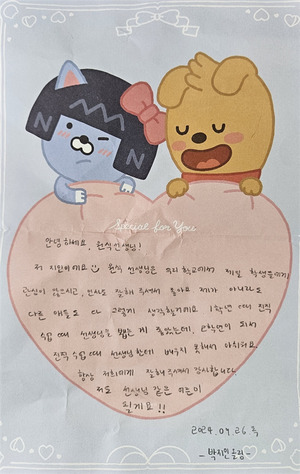 Special for You
안녕하세요, 현식선생님!
저 지원이에요 :) 현식 선생님은 우리 학교에서 제일 학생들에게
관심이 많으시고, 인사도 잘해 주셔서 좋아요 제가 아니라도
다른 애들도 다 그렇게 생각할거에요 1학년 때 진짜
수업 때 선생님을 뵙는 게 좋았는데, 2학년이 되서
진짜 수업 때 선생님한테 배우지 못해서 아쉬워요.
항상 저희에게 잘해주셔서 감사합니다
저도 선생님 같은 어른이
될게요!!
2024. 09. 26 목
-박지원 올림-